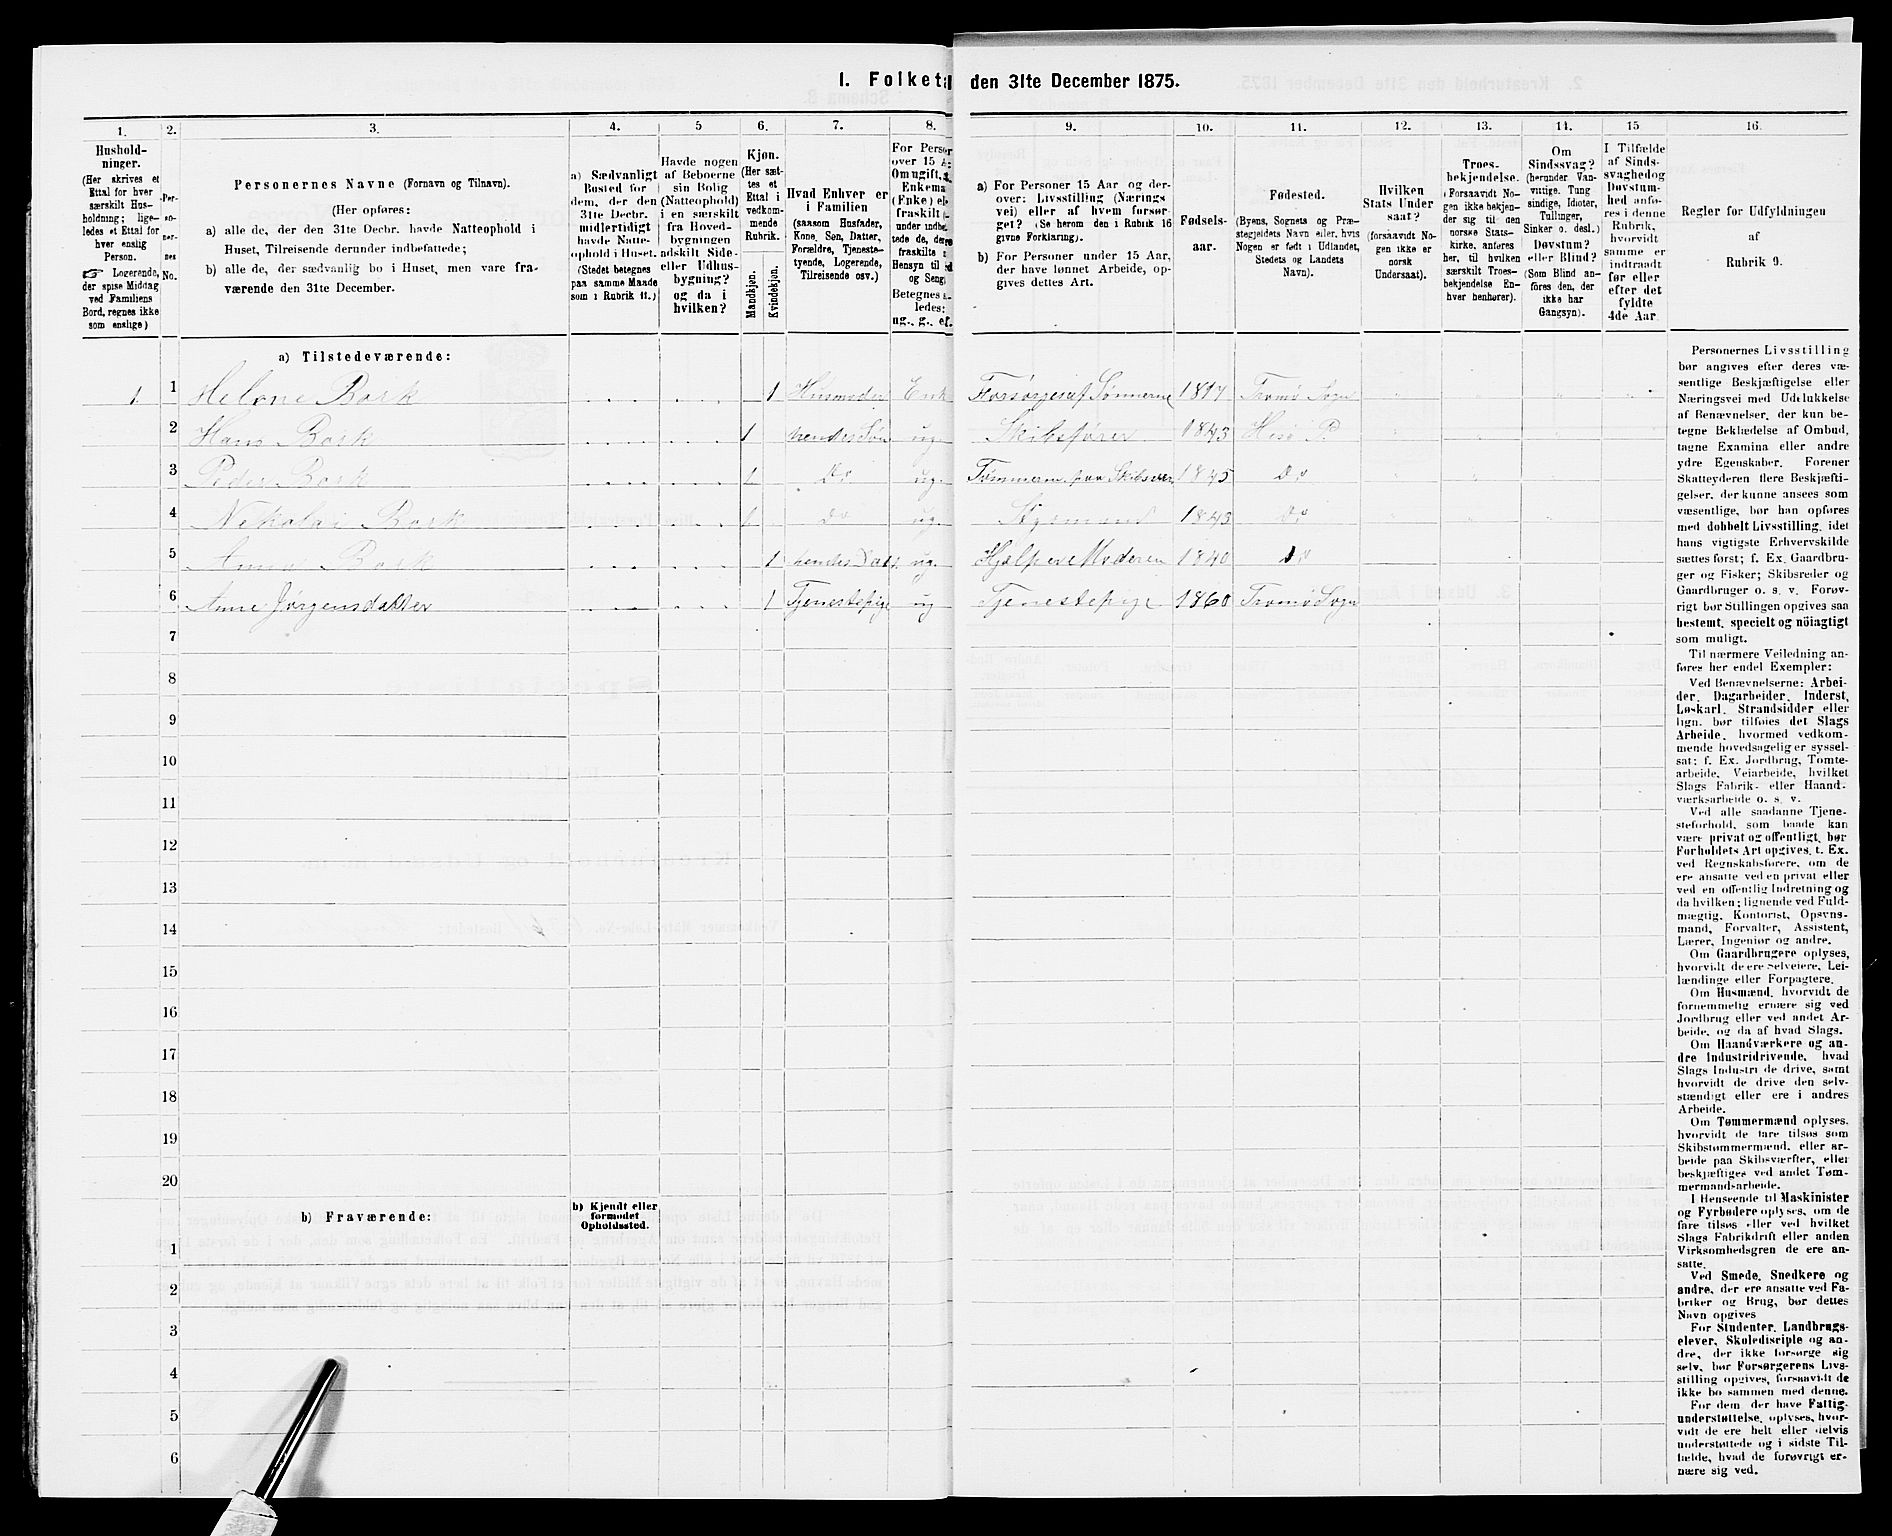 I. Folketæ den 31te December 1875.
1. 2. 3. 4. 5 6. 7. 8. 9. 10. 11. 12. 13. 14. 15 16.
Hushold-
ninger.
(Her skrives et
Ettal for hver
særskilt Hus-
holdning; lige-
ledes et Ettal for
hver enslig
Person.
☞ Logerende,
der spise Middag
ved Familiens
Bord, regnes ikke
som enslige)
Per-
so-
ner-
nes
No.
Personernes Navne (Fornavn og Tilnavn).
(Her opføres:
a) alle de, der den 31te Decbr. havde Natteophold i
Huset, Tilreisende derunder indbefattede;
b) alle de, der sædvanlig bo i Huset, men vare fra-
værende den 31te December.
a) Sædvanligt
Bosted for
dem, der den
31te Decbr.
midlertidigt
havde Natte-
ophold i Huset.
(Stedet betegnes
paa samme Maade
som i Rubrik 11.)
Havde nogen
af Beboerne
sin Bolig
(Natteophold)
i en særskilt
fra Hoved-
bygningen
adskilt Side-
eller Udhus-
bygning?
og da i
hvilken?
Kjøn.
(Her sæt-
tes et
Ettal i
vedkom-
mende
Rubrik.
Mandkjøn.
Kvindekjøn.
Hvad Enhver er
i Familien
(saasom Husfader,
Kone, Søn, Datter,
Forældre, Tjeneste-
tyende, Logerende,
Tilreisende osv.)
For Person
over 15 A
Om ugift, g
Enkema
(Enke) ele
fraskilt
under indbe
tede de, der
fraskilte
Hensyn til d
og Seng
Betegnes a-
ledes:
ug., g., ef.
a) For Personer 15 Aar og der-
over: Livsstilling (Nærings-
vei) eller af hvem forsør-
get? (Se herom den i Rubrik 16
givne Forklaring).
b) For Personer under 15 Aar,
der have lønnet Arbeide, op-
gives dettes Art.
Fødsels-
aar.
Fødested.
(Byens, Sognets og Præ-
stegjeldets Navn eller, hvis
Nogen er født i Udlandet,
Stedets og Landets
Navn).
Hvilken
Stats Under
saat?
(forsaavidt No-
gen ikke er
norsk
Undersaat).
Troes-
bekjendelse.
(Forsaavidt No-
gen ikke bekjen-
der sig til den
norske Stats-
kirke, anføres
her, til hvilken
særskilt Troes-
bekjendelse En-
hver henhører).
Om
Sindssvag?
(herunder Van-
vittige, Tung
sindige, Idioter,
Tullinger,
Sinker o. desl.)
Døvstum?
eller Blind?
(Som Blind an-
føres den, der
ikke har
Gangsyn).
I Tilfælde
af Sinds-
svaghedog
Døvstum-
hed anfø-
res i denne
Rubrik,
hvorvidt
samme er
indtraadt
før eller
efter det
fyldte
4de Aar.
Regler for Udfyldningen
af
Rubrik 9.
a) Tilstedeværende:
1 1 Helene Bork 1 Husmoder Enk Forsørges af Sønnerne 1817 Tromø Sogn
2 Hans Bork 1 hendes Søn ug. Skibsfører 1843 Hisø P.
3 Peder Bork 1 Do ug. Tømmerm. paa Skibsver 1845 Do
4 Nikolai Bork 1 Do ug. Styrmand 1843 Do
5 Anna Bork 1 hendes Dat. ug. Hjælper Moderen 1840 Do
6 Anne Jørgensdatter 1 Tjenestepige ug Tjenestepige 1860 Tromø Sogn
7
8
9
10
11
12
13
14
15
16
17
18
19
20
b) Fraværende:
b) Kjendt eller
formodet
Opholdssted.
1
2
3
4
5
6
Personernes Livsstilling
bør angives efter deres væ-
sentlige Beskjæftigelse eller
Næringsvei med Udelukkelse
af Benævnelser, der kun be-
tegne Beklædelse af Ombud,
tagne Examina eller andre
ydre Egenskaber. Forener
Skatteyderen flere Beskjæfti-
gelser, der kunne ansees som
væsentlige, bør han opføres
med dobbelt Livsstilling, idet
hans vigtigste Erhvervskilde
sættes først; f. Ex. Gaardbru-
ger og Fisker; Skibsreder og
Gaardbruger o. s. v. Forøv-
rigt bør Stillingen opgives saa
bestemt, specielt og nöiagtigt
som muligt.
Til nærmere Veiledning an-
føres her endel Exempler:
Ved Benævnelserne: Arbei-
der, Dagarbeider, Inderst,
Løskarl, Strandsidder eller
lign. bør tilføies det Slags
Arbeide, hvormed vedkom-
mende hovedsagelig er syssel-
sat; f. Ex. Jordbrug, Tomte-
arbeide, Veiarbeide, hvilket
Slags Fabrik- eller Haand-
værksarbeide o. s. v.
Ved alle saadanne Tjene-
steforhold, som baade kan
være privat og offentligt, bør
Forholdets Art opgives, t. Ex.
ved Regnskabsførere, om de
ere ansatte ved en privat eller
ved en offentlig Indretning og
da hvilken; lignende ved Fuld-
mægtig, Kontorist, Opsyns-
mand, Forvalter, Assistent,
Lærer, Ingeniør og andre.
Om Gaardbrugere oplyses,
hvorvidt de ere selveiere, Lei-
lændinge eller Forpagtere.
Om Husmænd, hvorvidt de
fornemmelig ernære sig ved
Jordbrug eller ved andet Ar-
beide, og da af hvad Slags.
Om Haandværkere og an-
dre Industridrivende, hvad
Slags Industri de drive, samt
hvorvidt de drive den selv-
stændigt eller ere i andres
Arbeide.
Om Tømmermænd oplyses,
hvorvidt de fare tilsøs som
Skibstømmermænd, eller ar-
beide paa Skibsværfter, eller
beskjæftiges ved andet Tøm-
mermandsarbeide.
I Henseende til Maskinister
og Fyrbødere oplyses, om de
fare tilsøs eller ved hvilket
Slags Fabrikdrift eller anden
Virksomhedsgren de ere an-
satte.
Ved Smede, Snedkere og
andre, der ere ansatte ved Fa-
briker og Brug, bør dettes
Navn opgives
For Studenter, Landbrugs-
elever, Skoledisciple og an-
dre, der ikke forsørge sig
selv, bør Forsørgerens Livs-
stilling opgives, forsaavidt de
ikke bo sammen med denne.
For dem, der have Fattig-
understøttelse, oplyses, hvor-
vidt de ere helt eller delvis
understøttede og i sidste Til-
fælde, hvad de forøvrigt er-
nære sig ved.